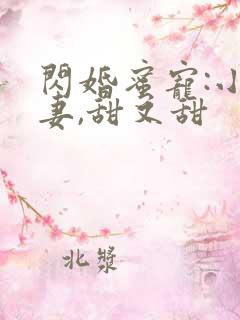 閃婚蜜寵:小
妻,甜又甜
北漿